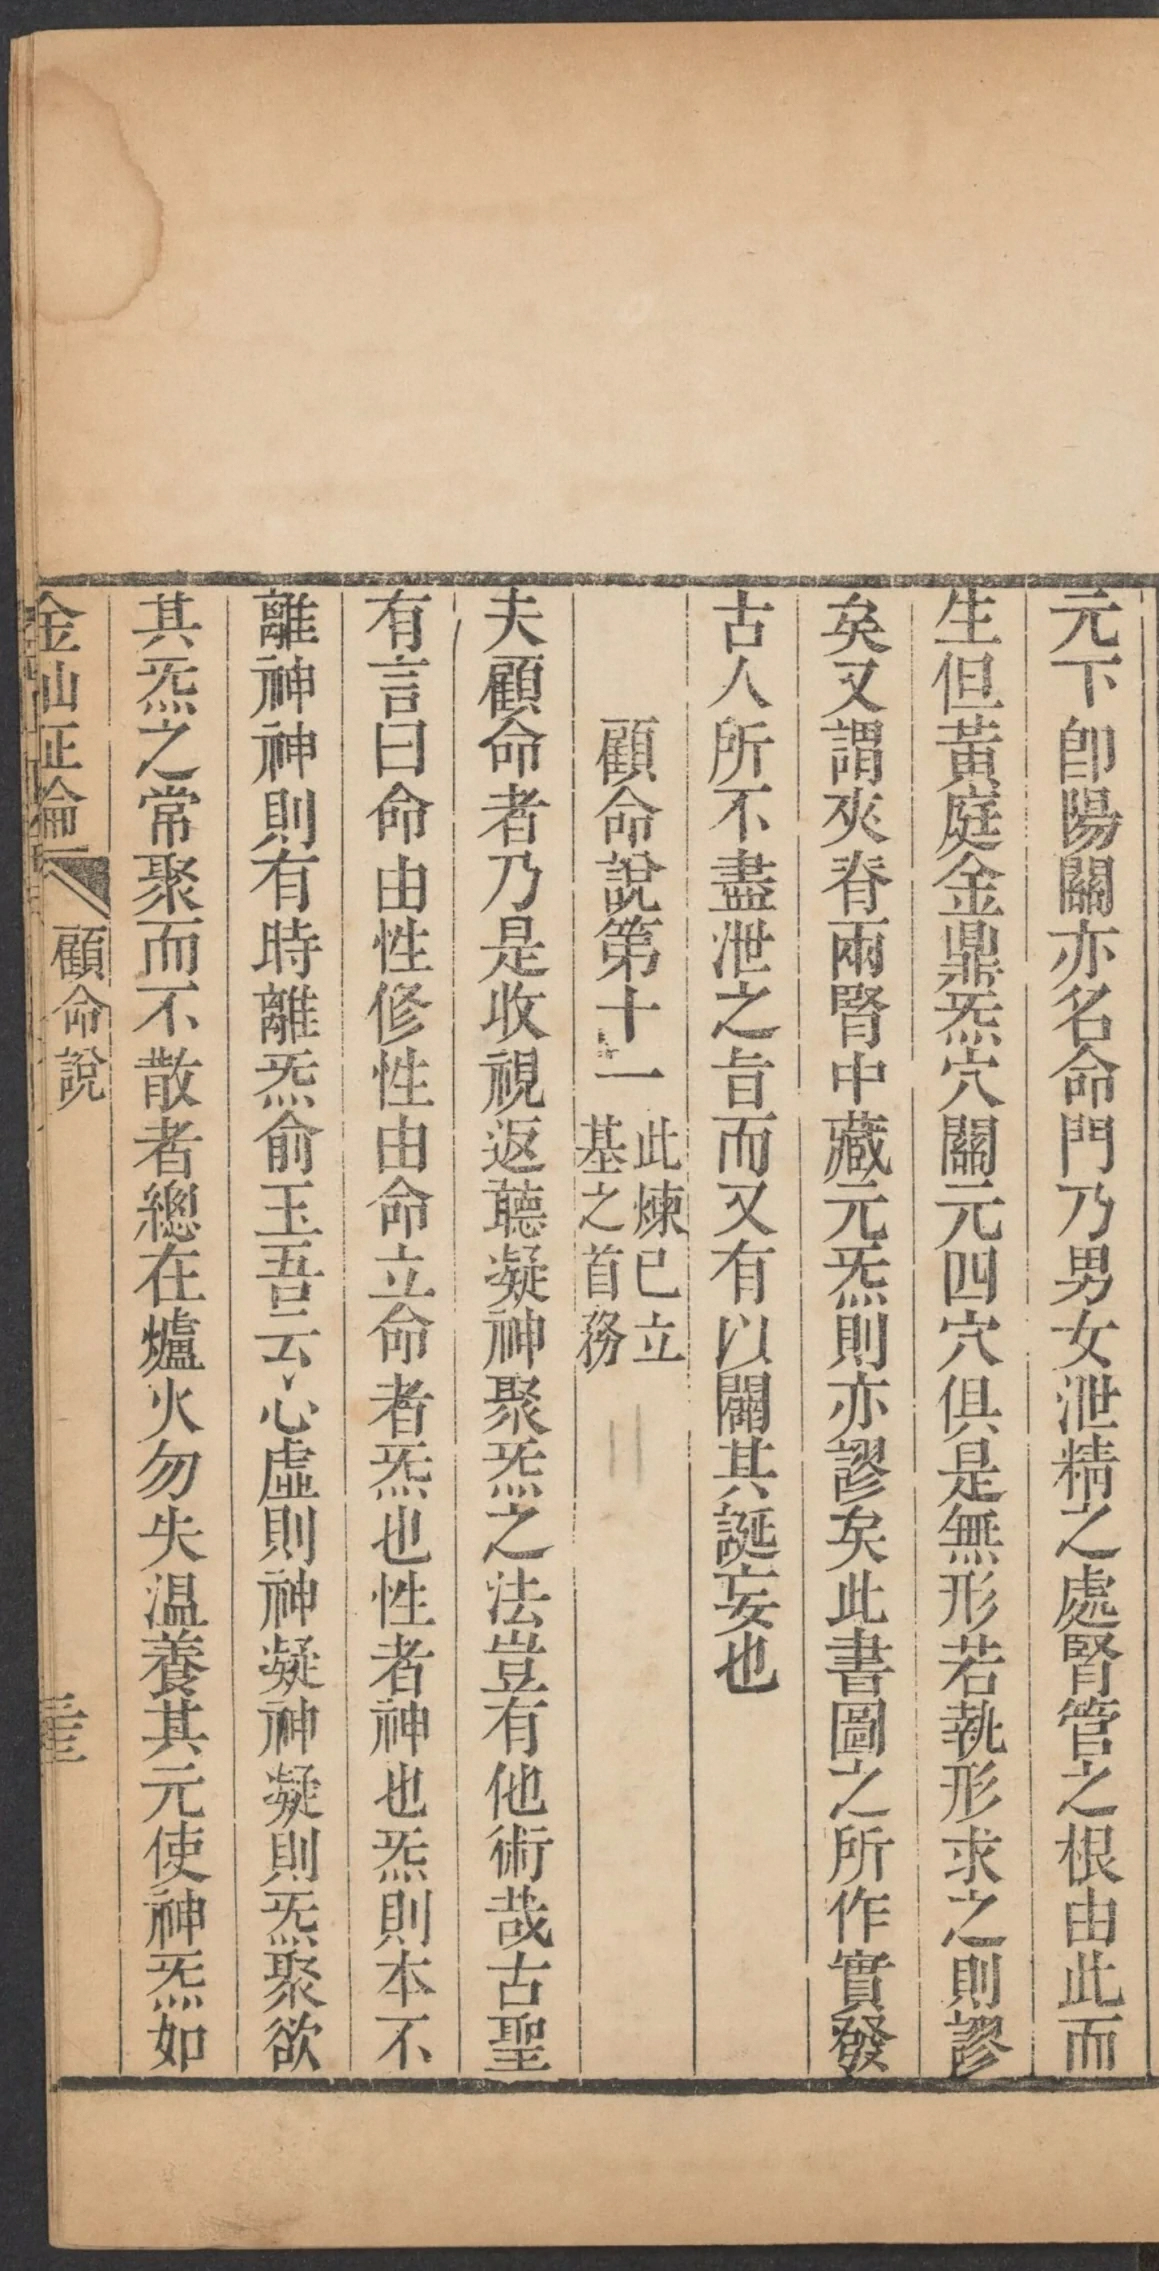 元下卽陽關亦名命門乃男女泄精之處腎管之根由此而
生但黃庭金鼎炁穴關元四穴俱是無形若執形求之則謬
矣又謂夾脊兩腎中藏元炁則亦謬矣此書圖之所作實發
古人所不盡泄之旨而又有以闢其誕妄也
顧命說第十一
此煉已立
基之首務
夫顧命者乃是收視返聽凝神聚炁之法豈有他術哉古聖
有言曰命由性修性由命立命者炁也性者神也炁則本不
離神神則有時離炁俞玉吾云心虛則神凝神凝則炁聚欲
其炁之常聚而不散者總在爐火勿失温養其元使神炁如
金仙正論
顧命說